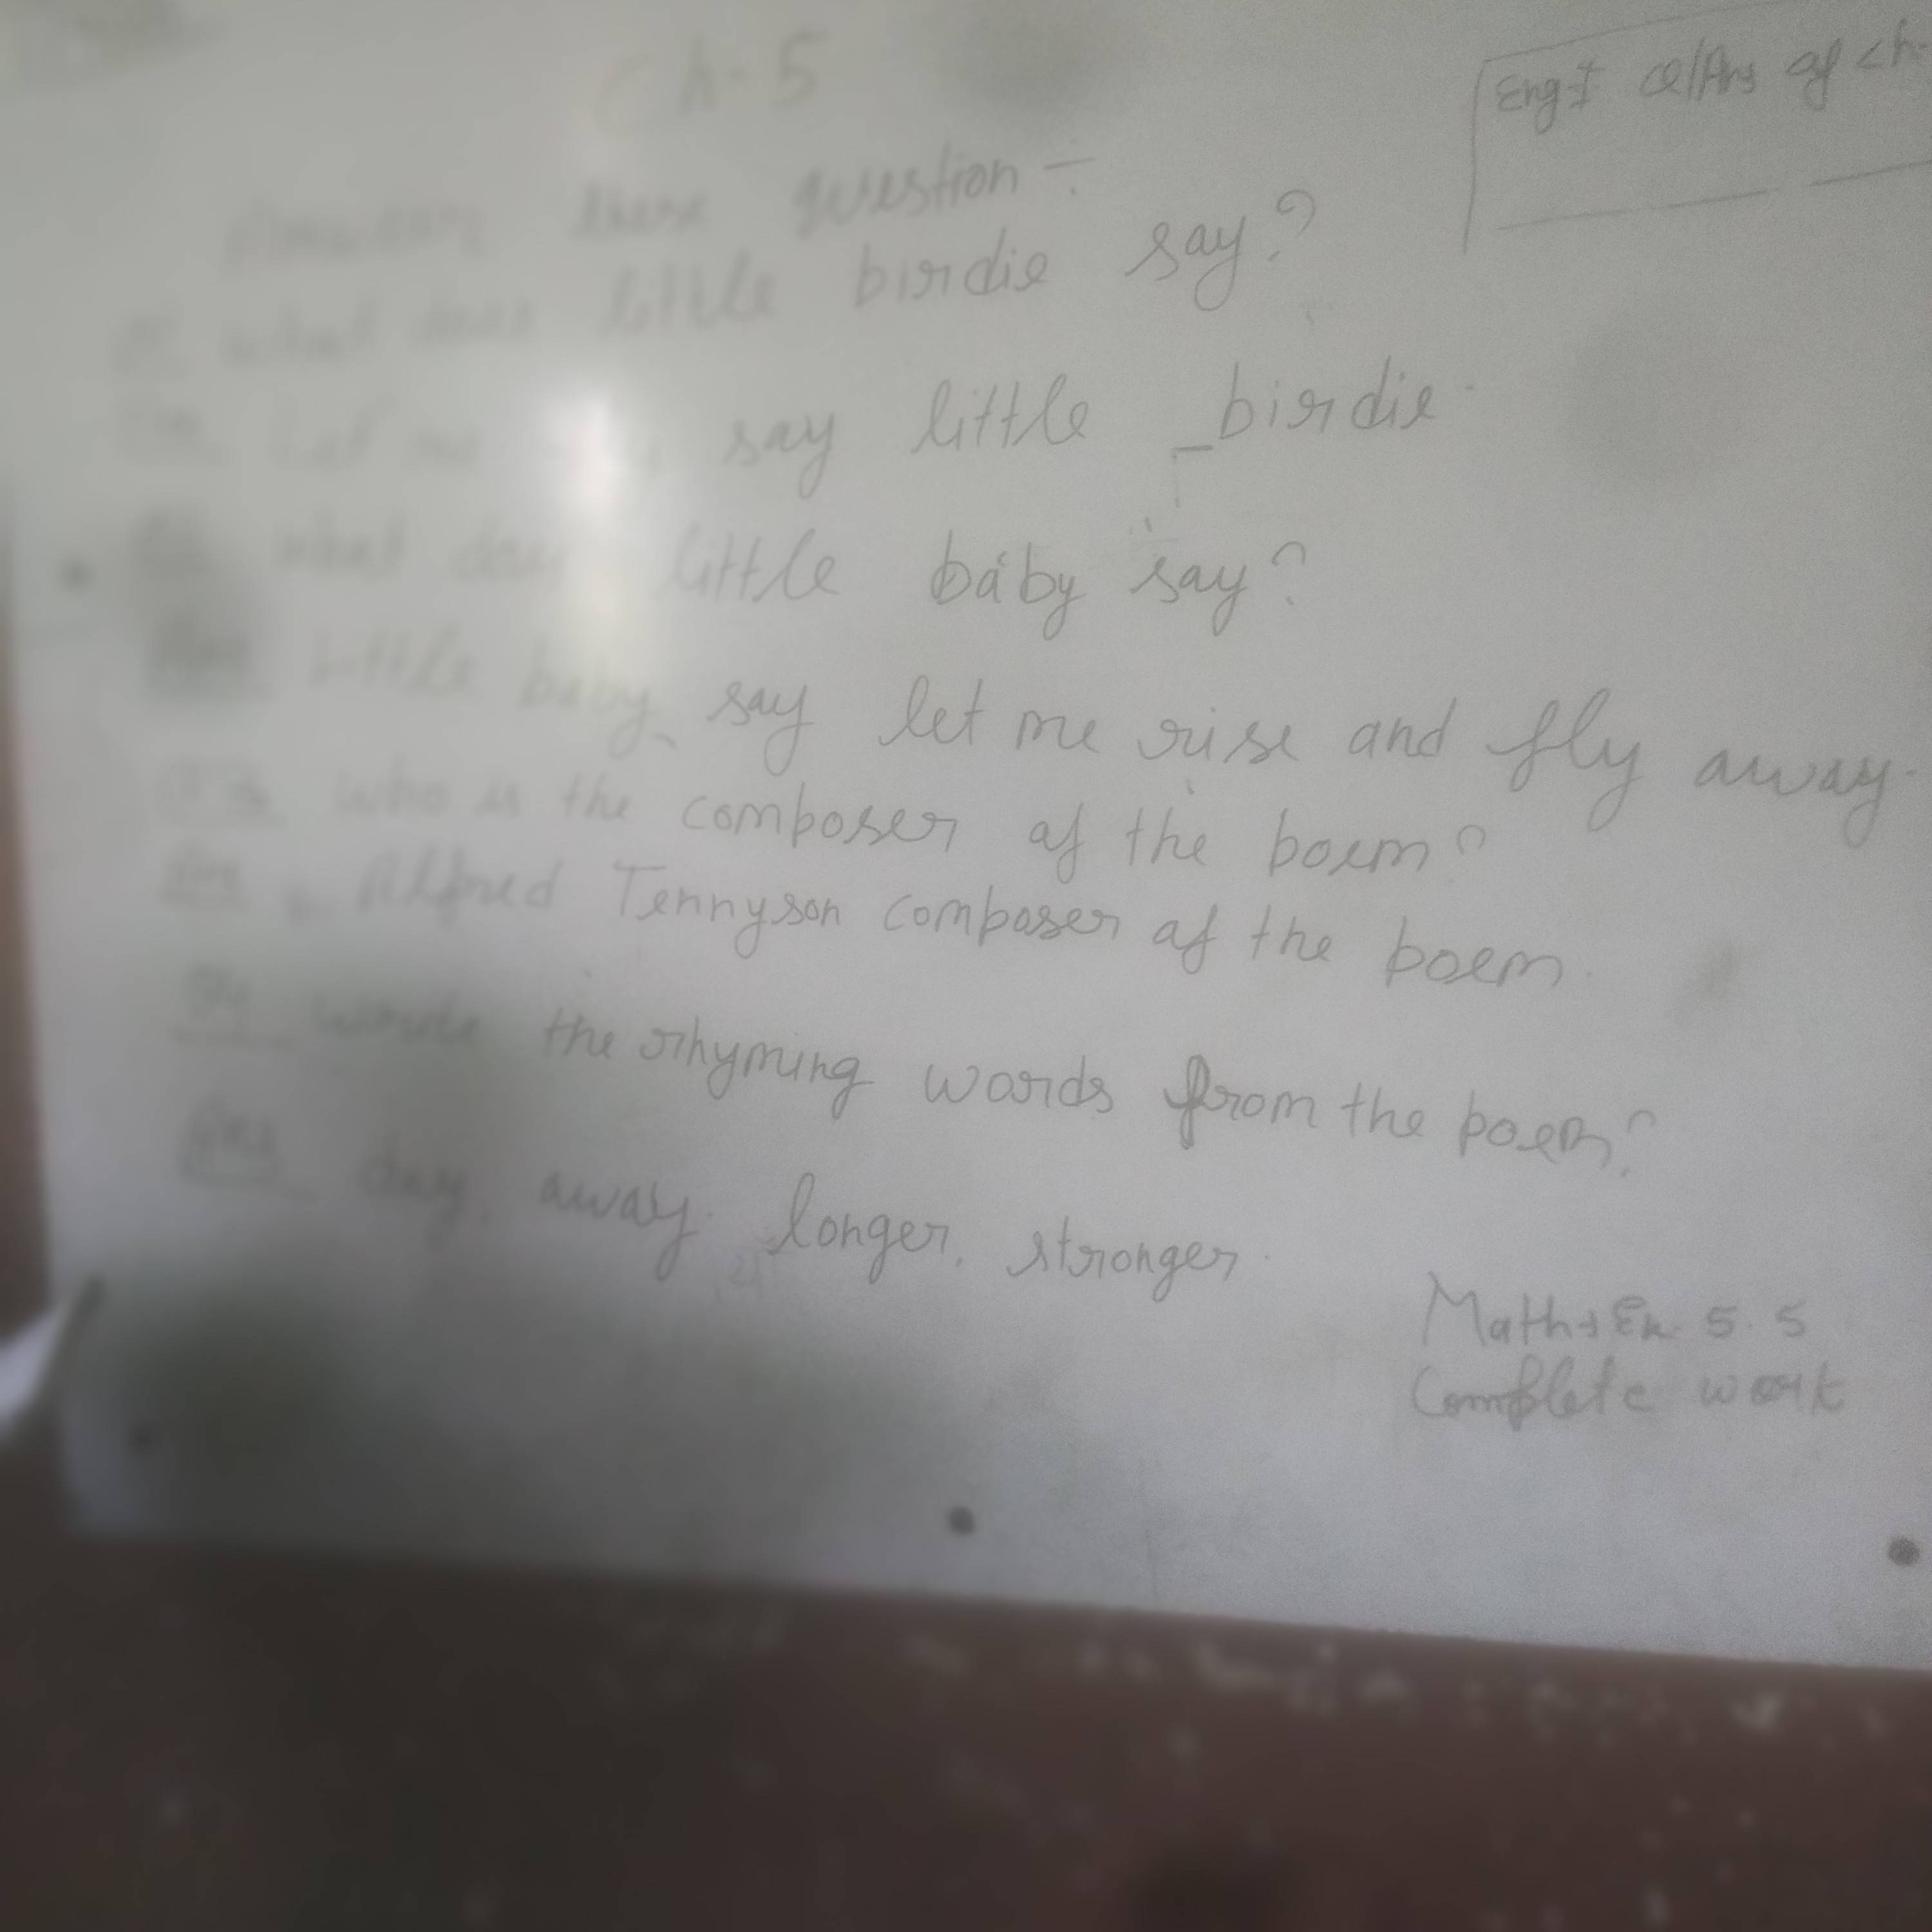 Ch-5
Eng-I Q/Ans of ch-
Answer these question ÷
what does little birdie say?
Let me say little birdie.
what does little baby say?
Ans Little baby say let me rise and fly away.
Q3 who is the composer of the poem?
Ans Alfred Tennyson composer of the poem.
write the rhyming words from the poem?
Ans day, away. longer, stronger.
Math → Ex. 5.5
Complete work